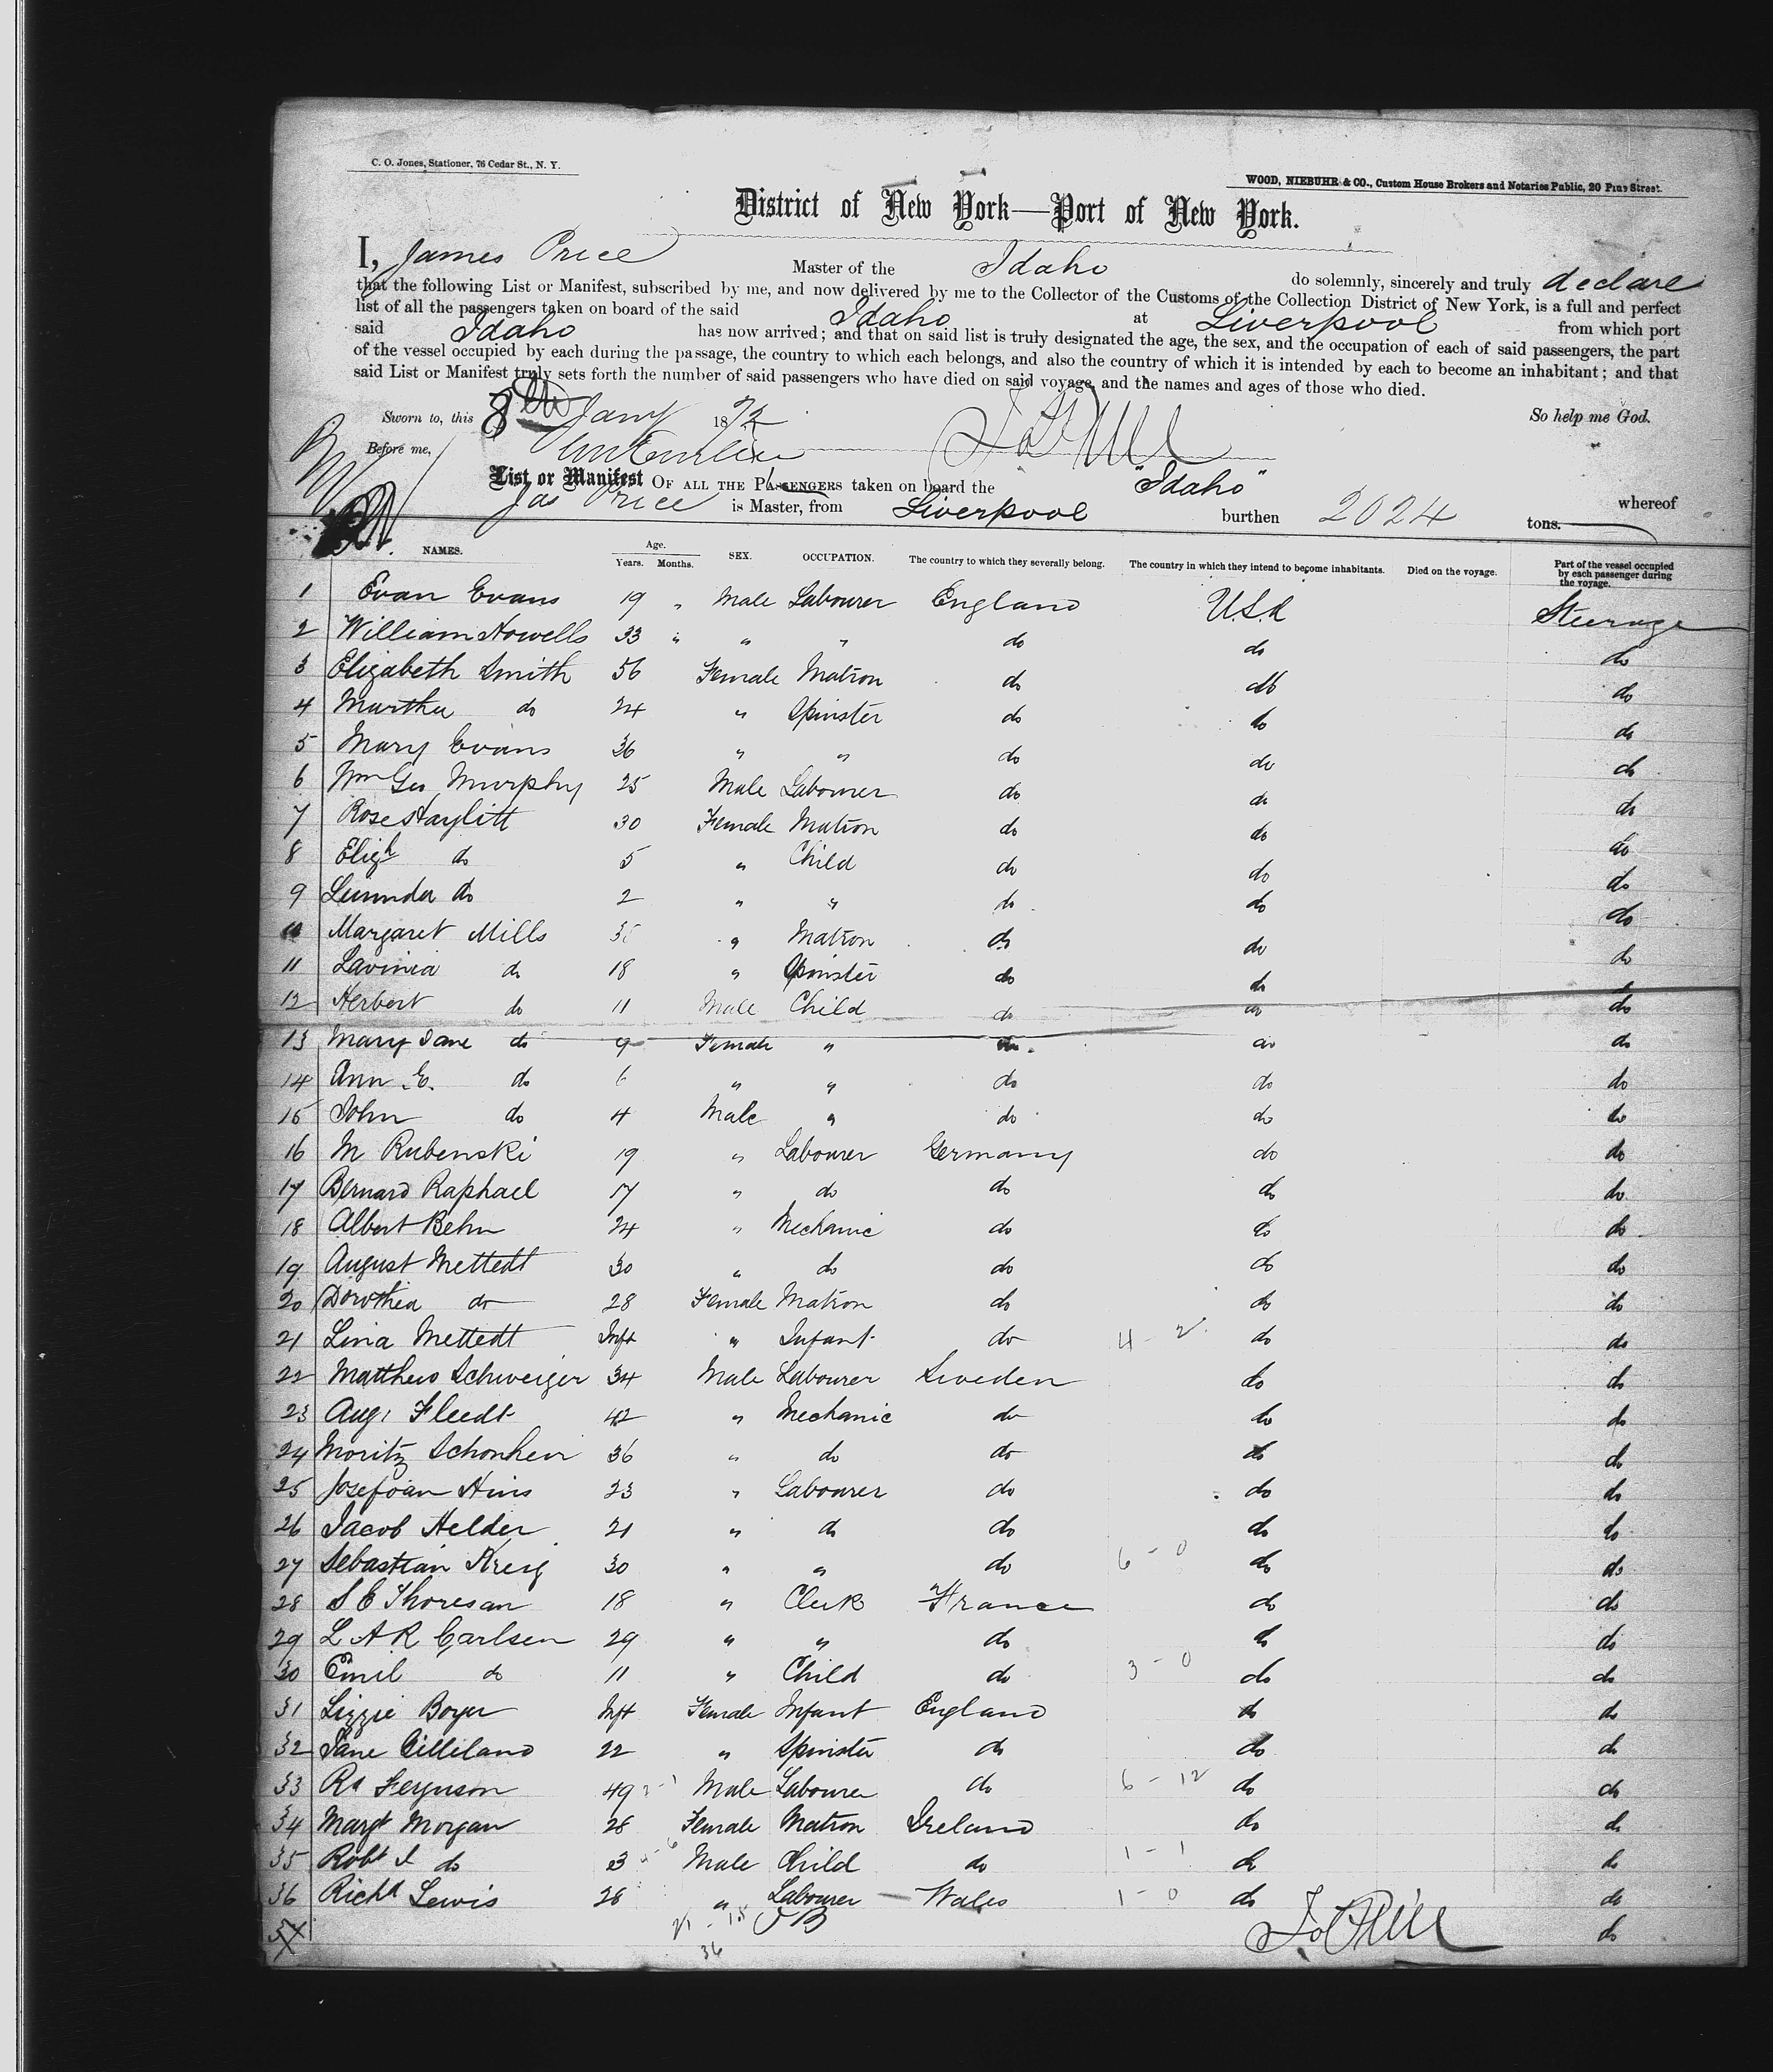 C. O. Jones, Stationer, 76 Cedar St., N. Y.
WOOD, NIEBUHR & CO., Custom House Brokers and Notaries Public, 20 Pine Street.
District of New York—Port of New York.
I, James Price Master of the Idaho do solemnly, sincerely and truly declare
that the following List or Manifest, subscribed by me, and now delivered by me to the Collector of the Customs of the Collection District of New York, is a full and perfect
list of all the passengers taken on board of the said Idaho at Liverpool from which port
said Idaho has now arrived; and that on said list is truly designated the age, the sex, and the occupation of each of said passengers, the part
of the vessel occupied by each during the passage, the country to which each belongs, and also the country of which it is intended by each to become an inhabitant; and that
said List or Manifest truly sets forth the number of said passengers who have died on said voyage, and the names and ages of those who died.
Sworn to, this 8th Jany 1872 So help me God.
Before me, Jas Price
List or Manifest OF ALL THE PASSENGERS taken on board the "Idaho" whereof
Jas Price is Master, from Liverpool burthen 2024 tons.
NAMES. Age. Years. Months. SEX. OCCUPATION. The country to which they severally belong. The country in which they intend to become inhabitants. Died on the voyage. Part of the vessel occupied by each passenger during the voyage.
1 Evan Evans 19 " Male Labourer England U.S.A Steerage
2 William Howells 33 " " " do do do
3 Elizabeth Smith 56 Female Matron do do do
4 Martha do 24 " Spinster do do do
5 Mary Evans 36 " " do do do
6 Wm Geo Murphy 25 Male Labourer do do do
7 Rose Haylitt 30 Female Matron do do do
8 Elizh do 5 " Child do do do
9 do 2 " " do do do
10 Margaret Mills " Matron do do do
11 Lavinia do 18 " Spinster do do do
12 Herbert do 11 Male Child do do do
13 Mary Jane do 9 Female " do do do
14 Ann E. do 6 " " do do do
15 John do 4 Male " do do do
16 M Rubenski 19 " Labourer Germany do do
17 Bernard Raphael 17 " do do do do
18 Albert Behn 24 " Mechanic do do do
19 August Mettedt 30 " do do do do
20 Dorothea do 28 Female Matron do do do
21 Lina Mettedt Inft " Infant do 4 - 2 do do
22 Matthew Schweizer 34 Male Labourer Sweden do do
23 Aug. Fleedt 42 " Mechanic do do do
24 Moritz Schonheir 36 " do do do do
25 Josefoan Hins 23 " Labourer do do do
26 Jacob Helder 21 " do do do do
27 Sebastian Kreig 30 " " do 6 - 0 do do
28 S E Thoresan 18 " Clerk France do do
29 L A R Carlsen 29 " " do do do
30 Emil do 11 " Child do 3 - 0 do do
31 Lizzie Boyer Inft Female Infant England do do
32 Jane Gilliland 22 " Spinster do do do
33 Rt Ferguson 49 Male Labourer do 6 - 12 do do
34 Margt Morgan 28 Female Matron Ireland do do
35 Robt J do 3 Male Child do 1 - 1 do do
36 Richd Lewis 28 " Labourer Wales 1 - 0 do do
21 - 15 do
36